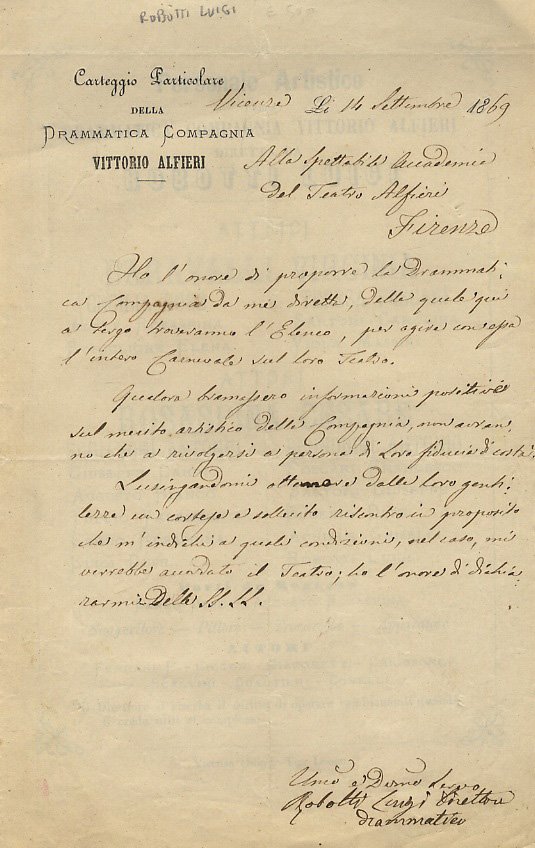 ROBOTTI LUIGI
Carteggio Particolare
DELLA
DRAMMATICA COMPAGNIA
VITTORIO ALFIERI
Vicenza Li 14 Settembre 1869
Alla Spettabile Accademia
del Teatro Alfieri
Firenze
Ho l'onore di proporre la Drammati-
ca Compagnia da me diretta, della quale qui
a tergo troveranno l'Elenco, per agire con essa
l'intero Carnevale sul loro Teatro.
Qualora bramassero informazioni positive
sul merito artistico della Compagnia, non avran-
no che a rivolgersi a persona di Loro fiducia di costà.
Lusingandomi ottenere dalla loro genti-
lezza un cortese e sollecito riscontro in proposito
che m'indichi a quali condizioni, nel caso, mi
verrebbe accordato il Teatro; ho l'onore di dichia-
rarmi Delle SS. LL.
Umo e Devmo Servo
Robotti Luigi Direttore
drammatico